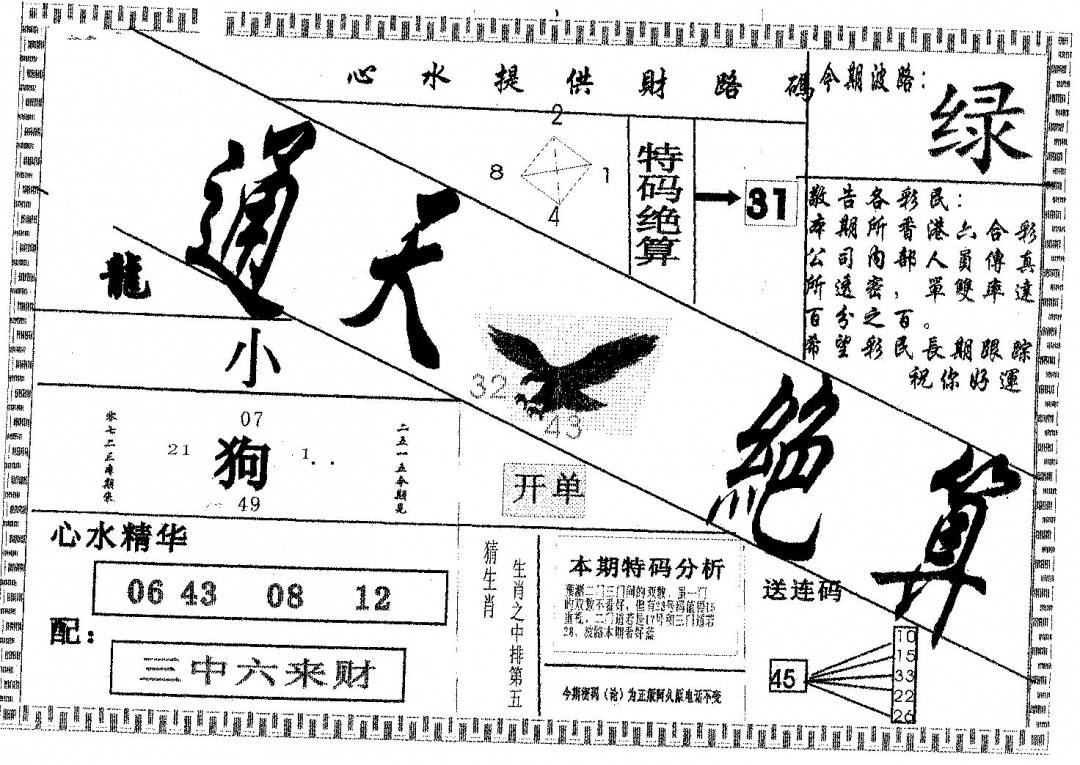 心水提供財路碼
今期波路：
绿
通天絕算
2
8
1
4
特码绝算
31
敬告各彩民：
本期所香港六合彩
公司内部人員傳真
所透密，單雙率達
百分之百。
希望彩民長期跟踪
祝你好運
龍
小
32
43
开单
07
21
狗
1..
49
零七二三
二五一五今期见
心水精华
06 43 08 12
配：
三中六来财
猜生肖
生肖之中排第五
本期特码分析
送连码
45
10
15
33
22
26